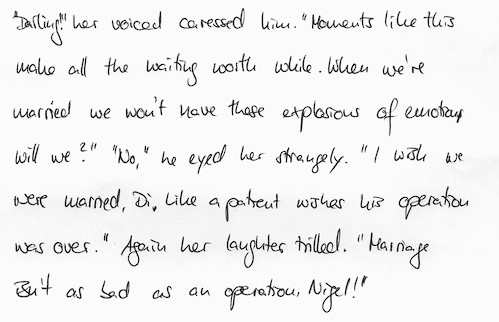 "Darling!" her voiced caressed him. "Moments like this
make all the waiting worth while. When we're
married we won't have these explosions of emotions
will we?" "No," he eyed her strangely. "I wish we
were married, Di, like a patient wishes his operation
was over." Again her laughter trilled. "Marriage
isn't as bad as an operation, Nigel!"